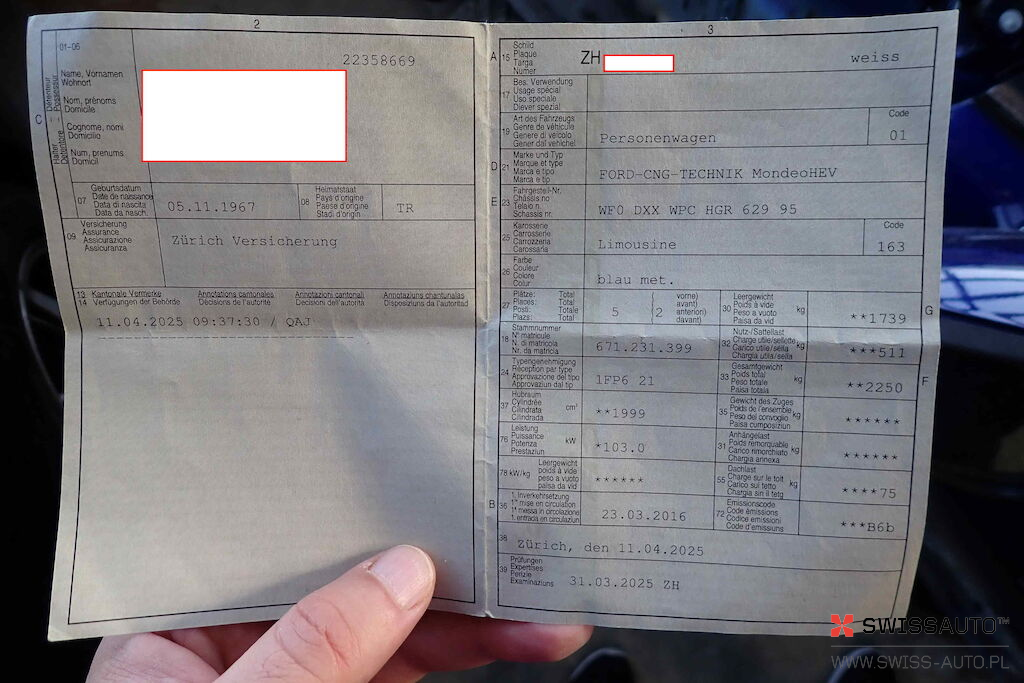 2
01-06
22358669
Détenteur
Possessur
Halter
Detentore
C
Name, Vornamen
Wohnort
Nom, prénoms
Domicile
Cognome, nomi
Domicilio
Num, prenums
Domicil
07
Geburtsdatum
Date de naissance
Data di nascita
Data da nasch.
05.11.1967
08
Heimatstaat
Pays d'origine
Paese d'origine
Stadi d'origin
TR
09
Versicherung
Assurance
Assicurazione
Assicuranza
Zürich Versicherung
13
14
Kantonale Vermerke
Verfügungen der Behörde
Annotations cantonales
Décisions de l'autorité
Annotazioni cantonali
Decisioni dell'autorità
Annotaziuns chantunalas
Disposiziuns da l'autoritad
11.04.2025 09:37:30 / QAJ
3
A
15
Schild
Plaque
Targa
Numer
ZH
weiss
17
Bes. Verwendung
Usage spécial
Uso speciale
Diever spezial
19
Art des Fahrzeugs
Genre de véhicule
Genere di veicolo
Gener dal vehichel
Personenwagen
Code
01
D
21
Marke und Typ
Marque et type
Marca e tipo
Marca e tip
FORD-CNG-TECHNIK MondeoHEV
E
23
Fahrgestell-Nr.
Châssis no
Telaio n.
Schassis nr.
WF0 DXX WPC HGR 629 95
25
Karosserie
Carrosserie
Carrozzeria
Carossaria
Limousine
Code
163
26
Farbe
Couleur
Colore
Colur
blau met.
27
Plätze: Total
Places: Total
Posti: Totale
Plazs: Total
5
(2
vorne)
avant)
anteriori)
davant)
30
Leergewicht
Poids à vide
Peso a vuoto
Paisa da vid
kg
**1739
G
18
Stammnummer
N° matricule
N. di matricola
Nr. da matricla
671.231.399
32
Nutz-/Sattellast
Charge utile/sellette
Carico utile/sella
Chargia utila/sella
kg
***511
24
Typengenehmigung
Réception par type
Approvazione del tipo
Approvaziun dal tip
1FP6 21
33
Gesamtgewicht
Poids total
Peso totale
Paisa totala
kg
**2250
F
37
Hubraum
Cylindrée
Cilindrata
Cilindrada
cm³
**1999
35
Gewicht des Zuges
Poids de l'ensemble
Peso del convoglio
Paisa cumposiziun
kg
******
76
Leistung
Puissance
Potenza
Prestaziun
kW
*103.0
31
Anhängelast
Poids remorquable
Carico rimorchiato
Chargia annexa
kg
******
78 kW/kg
Leergewicht
poids à vide
peso a vuoto
paisa da vid
******
55
Dachlast
Charge sur le toit
Carico sul tetto
Chargia sin il tetg
kg
****75
B
36
1. Inverkehrsetzung
1re mise en circulation
1a messa in circolazione
1. entrada en circulaziun
23.03.2016
72
Emissionscode
Code émissions
Codice emissioni
Code d'emissiuns
***B6b
38
Zürich, den 11.04.2025
39
Prüfungen
Expertises
Perizie
Examinaziuns
31.03.2025 ZH
SWISSAUTO™
WWW.SWISS-AUTO.PL